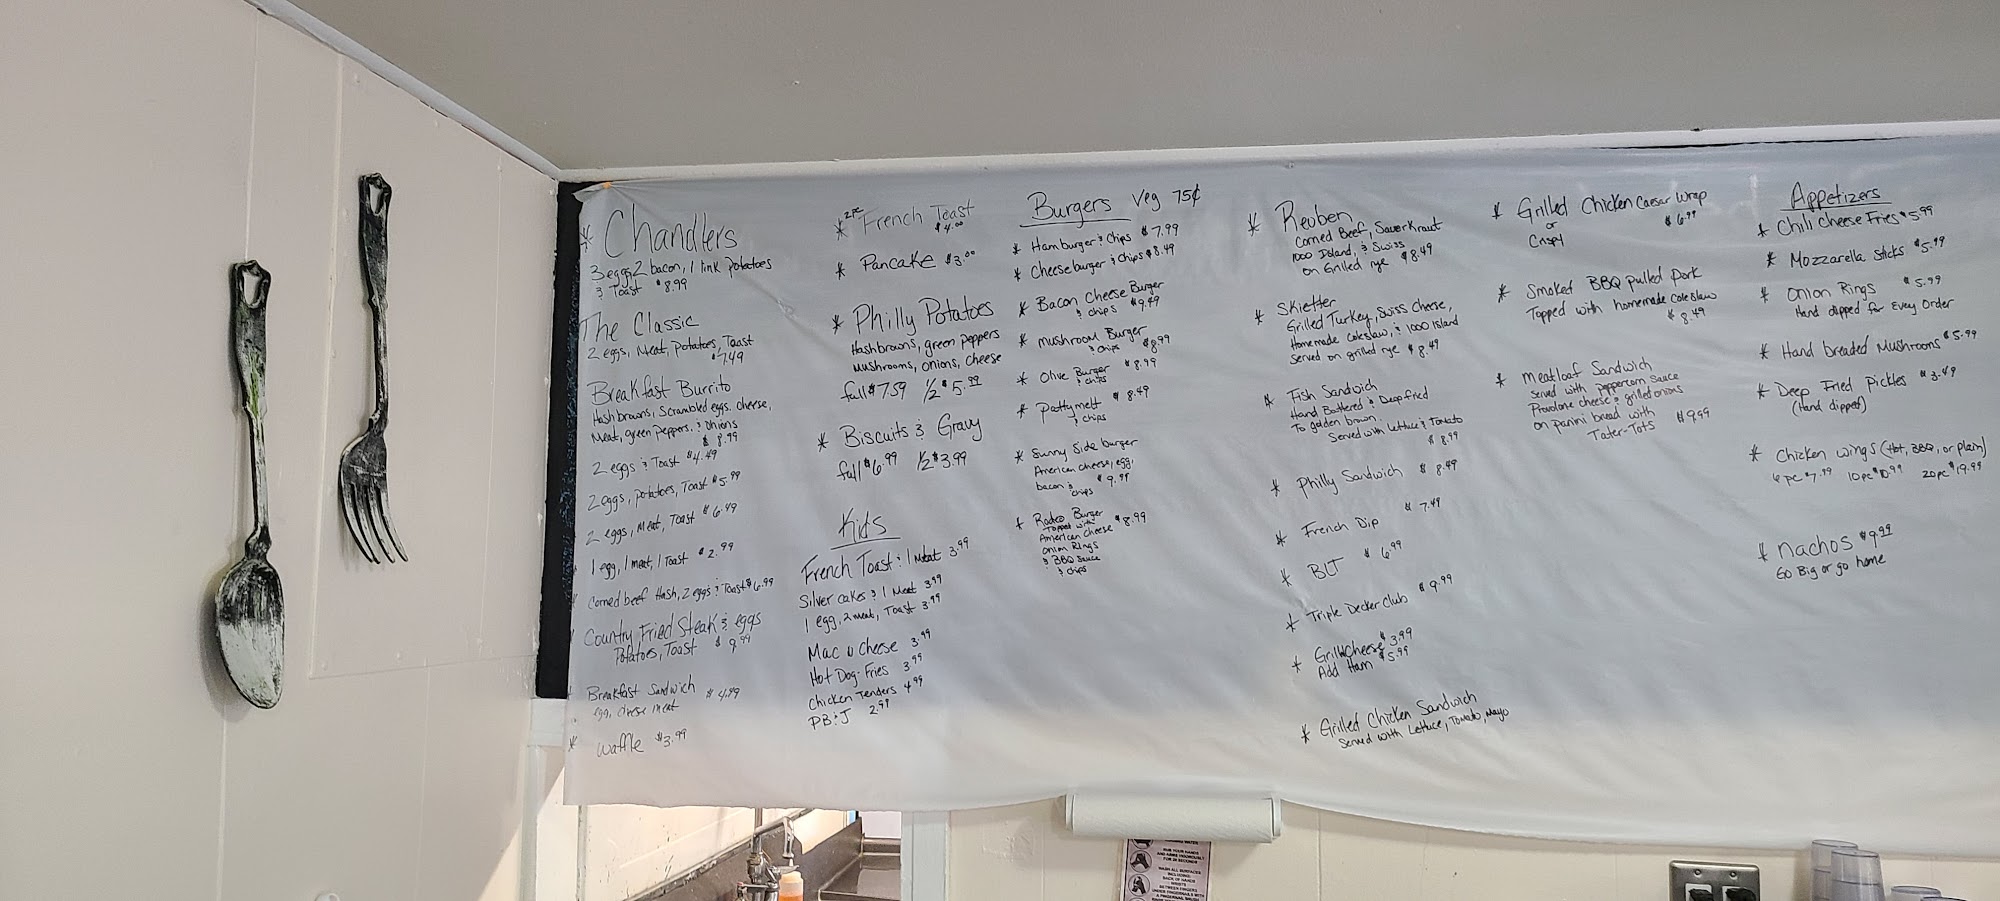 * Chandlers
3 eggs, 2 bacon, 1 link potatoes
& Toast $8.99
The Classic
2 eggs, Meat, Potatoes, Toast
$7.49
Breakfast Burrito
Hashbrowns, Scrambled eggs, cheese,
Meat, green peppers, & Onions
$8.99
2 eggs & Toast $4.49
2 eggs, potatoes, Toast $5.99
2 eggs, Meat, Toast $6.49
1 egg, 1 meat, 1 Toast $2.99
Corned beef Hash, 2 eggs & Toast $6.99
Country Fried Steak & eggs
Potatoes, Toast $9.99
Breakfast Sandwich $4.99
egg, cheese, meat
* Waffle $3.99
* 2pc French Toast
$4.00
* Pancake $3.00
* Philly Potatoes
Hashbrowns, green peppers
Mushrooms, Onions, Cheese
full $7.59 1/2 $5.99
* Biscuits & Gravy
full $6.99 1/2 $3.99
Kids
French Toast & 1 Meat 3.99
Silver cakes & 1 Meat 3.99
1 egg, 2 meat, Toast 3.99
Mac n Cheese 3.99
Hot Dog & Fries 3.99
Chicken Tenders 4.99
PB & J 2.99
Burgers Veg 75¢
* Hamburger & Chips $7.99
* Cheeseburger & Chips $8.49
* Bacon Cheese Burger
& chips $9.49
* mushroom Burger
& chips $8.99
* Olive Burger $8.99
& chips
* Pattymelt $8.49
& chips
* Sunny Side burger
American cheese, egg,
bacon & $9.99
chips
* Rodeo Burger
Topped with
American cheese $8.99
Onion Rings
& BBQ Sauce
& chips
* Reuben
Corned Beef, Sauerkraut
1000 Island, & Swiss
on Grilled rye $8.49
* Skietter
Grilled Turkey, Swiss Cheese,
Homemade Coleslaw, & 1000 Island
Served on grilled rye $8.49
* Fish Sandwich
Hand Battered & Deep fried
To golden brown
Served with Lettuce & Tomato
$8.99
* Philly Sandwich $8.49
* French Dip $7.49
* BLT $6.99
* Triple Decker Club $9.99
* Grill Cheese $3.99
Add Ham $5.99
* Grilled Chicken Sandwich
Served with Lettuce, Tomato, Mayo
* Grilled Chicken Caesar Wrap
or $6.99
Crispy
* Smoked BBQ pulled pork
Topped with homemade Coleslaw
$8.49
* Meatloaf Sandwich
Served with peppercorn Sauce
Provolone cheese & grilled onions
on panini bread with
Tater-Tots $9.99
Appetizers
* Chili Cheese Fries $5.99
* Mozzarella Sticks $5.99
* Onion Rings $5.99
Hand dipped for Every Order
* Hand breaded Mushrooms $5.99
* Deep Fried Pickles $3.49
(Hand dipped)
* Chicken wings (Hot, BBQ, or Plain)
6 pc $7.99 10 pc $10.99 20 pc $19.99
* nachos $9.99
Go Big or go home
RUB YOUR HANDS
AND ARMS VIGOROUSLY
FOR 20 SECONDS
WASH ALL SURFACES
INCLUDING:
BACK OF HANDS
WRISTS
BETWEEN FINGERS
UNDER FINGERNAILS WITH
A FINGERNAIL BRUSH